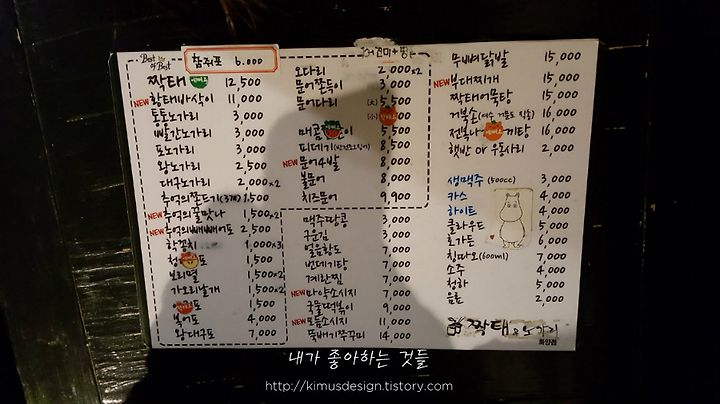 Best of Best
참쥐포 6,000
짝태 12,500
NEW 황태바삭이 11,000
통통노가리 3,000
빨간노가리 3,000
포노가리 3,000
왕노가리 2,500
대구노가리 2,000x2
추억의쫀드기(3개) 1,500
NEW 추억의꿀맛나 1,500x2
NEW 추억의빼빼어포 2,500
학꽁치 1,000x3
포 1,500
보리멸 1,500x2
가오리날개 1,500x2
포 1,500
복어포 4,000
왕대구포 7,000
오다리 2,000x2
문어쫀득이 3,000
문어다리 (大) 5,500
(小)
매콤 이 5,500
피데기 8,500
NEW 문어4발 8,000
불문어 8,000
치즈문어 9,900
맥주땅콩 3,000
구운김 3,000
얼음황도 7,000
번데기탕 7,000
계란찜 7,000
NEW 마약소시지 7,000
국물떡볶이 9,000
NEW 모듬소시지 11,000
뚝배기쭈꾸미 14,000
무뼈닭발 15,000
NEW 부대찌개 15,000
짝태어묵탕 15,000
거북손 16,000
전복나 끼탕 16,000
햇반 or 우동사리 2,000
생맥주 (500cc) 3,000
카스 4,000
하이트 4,000
클라우드 5,000
호가든 6,000
칭따오(600ml) 7,000
소주 4,000
청하 5,000
음료 2,000
짝태&노가리
화양점
내가 좋아하는 것들
http://kimusdesign.tistory.com